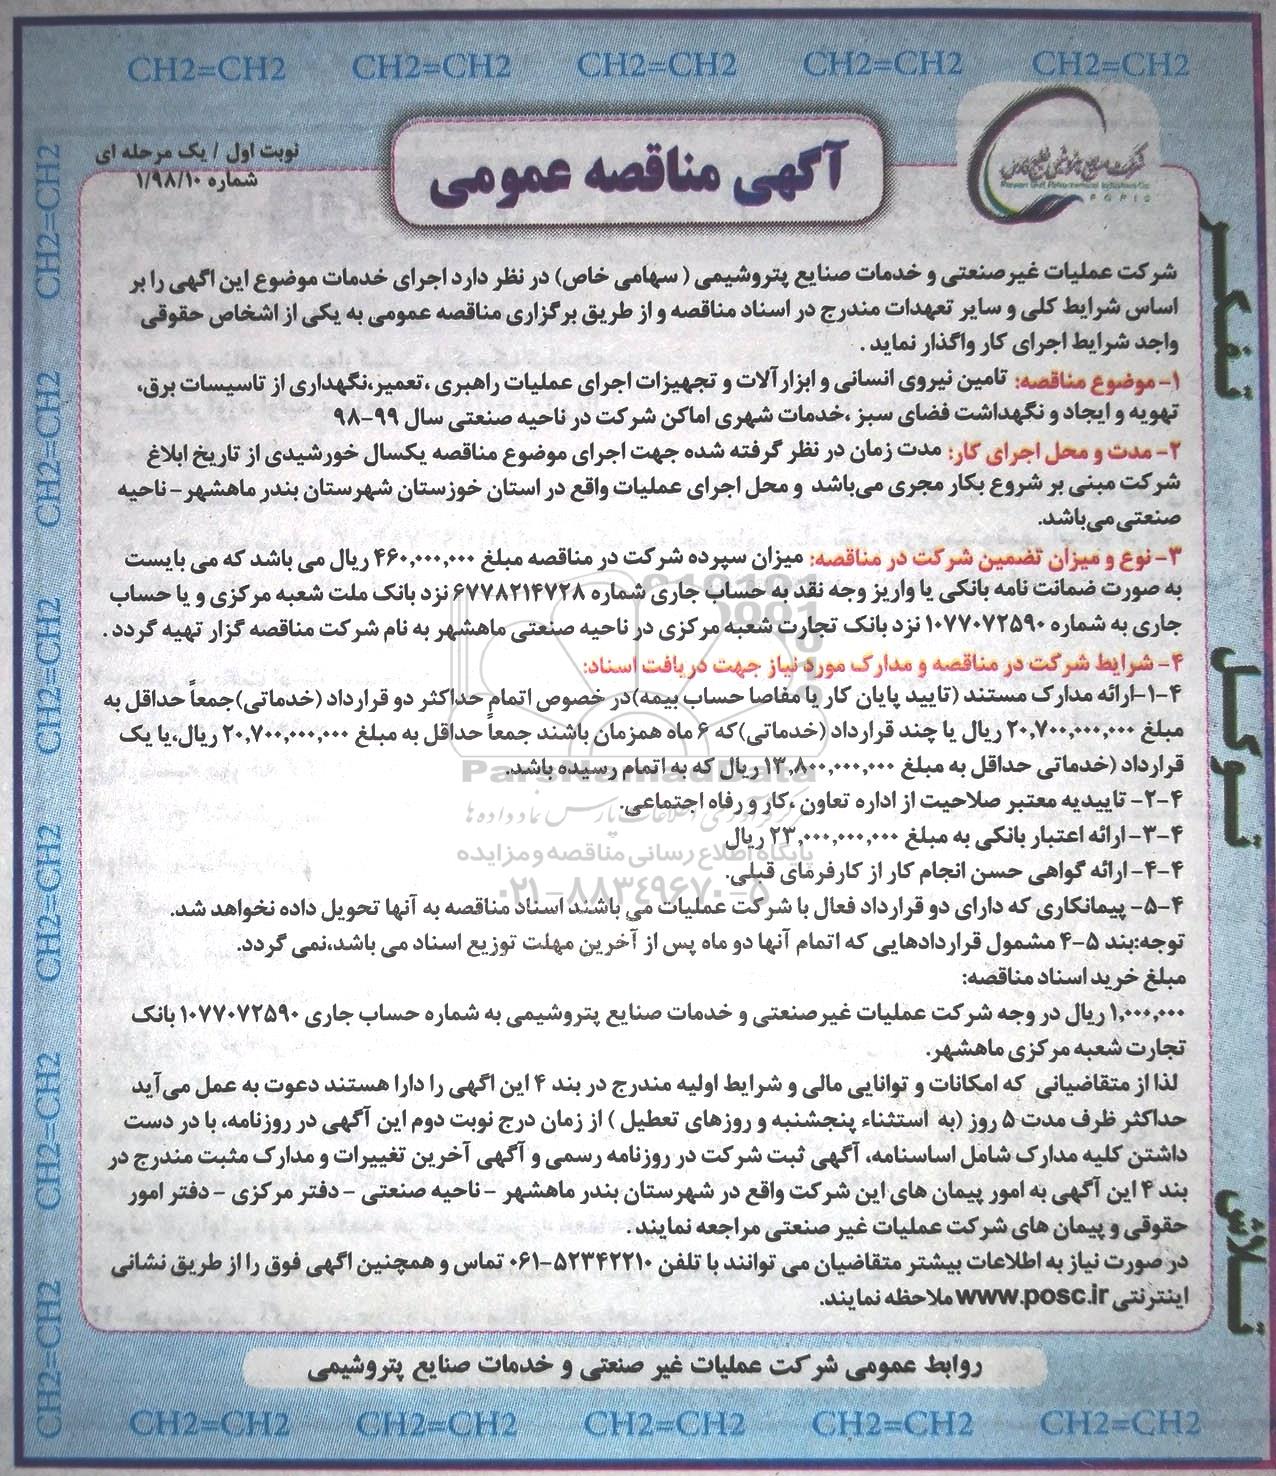 CH2=CH2 CH2=CH2 CH2=CH2 CH2=CH2 CH2=CH2
شرکت صنایع پتروشیمی خلیج فارس
Persian Gulf Petrochemical Industries Co.
PGPIC
آگهی مناقصه عمومی
نوبت اول / یک مرحله ای
شماره ۱/۹۸/۱۰
شرکت عملیات غیرصنعتی و خدمات صنایع پتروشیمی ( سهامی خاص) در نظر دارد اجرای خدمات موضوع این اگهی را بر
اساس شرایط کلی و سایر تعهدات مندرج در اسناد مناقصه و از طریق برگزاری مناقصه عمومی به یکی از اشخاص حقوقی
واجد شرایط اجرای کار واگذار نماید .
۱- موضوع مناقصه: تامین نیروی انسانی و ابزارآلات و تجهیزات اجرای عملیات راهبری ،تعمیر،نگهداری از تاسیسات برق،
تهویه و ایجاد و نگهداشت فضای سبز ،خدمات شهری اماکن شرکت در ناحیه صنعتی سال ۹۹-۹۸
۲- مدت و محل اجرای کار: مدت زمان در نظر گرفته شده جهت اجرای موضوع مناقصه یکسال خورشیدی از تاریخ ابلاغ
شرکت مبنی بر شروع بکار مجری می‌باشد و محل اجرای عملیات واقع در استان خوزستان شهرستان بندر ماهشهر- ناحیه
صنعتی می‌باشد.
۳- نوع و میزان تضمین شرکت در مناقصه: میزان سپرده شرکت در مناقصه مبلغ ۴۶۰,۰۰۰,۰۰۰ ریال می باشد که می بایست
به صورت ضمانت نامه بانکی یا واریز وجه نقد به حساب جاری شماره ۶۷۷۸۲۱۴۷۲۸ نزد بانک ملت شعبه مرکزی و یا حساب
جاری به شماره ۱۰۷۷۰۷۲۵۹۰ نزد بانک تجارت شعبه مرکزی در ناحیه صنعتی ماهشهر به نام شرکت مناقصه گزار تهیه گردد .
۴- شرایط شرکت در مناقصه و مدارک مورد نیاز جهت دریافت اسناد:
۴-۱-ارائه مدارک مستند (تایید پایان کار یا مفاصا حساب بیمه)در خصوص اتمام حداکثر دو قرارداد (خدماتی)جمعاً حداقل به
مبلغ ۲۰,۷۰۰,۰۰۰,۰۰۰ ریال یا چند قرارداد (خدماتی)که ۶ ماه همزمان باشند جمعاً حداقل به مبلغ ۲۰,۷۰۰,۰۰۰,۰۰۰ ریال،یا یک
قرارداد (خدماتی حداقل به مبلغ ۱۳,۸۰۰,۰۰۰,۰۰۰ ریال که به اتمام رسیده باشد.
۴-۲- تاییدیه معتبر صلاحیت از اداره تعاون ،کار و رفاه اجتماعی.
۴-۳- ارائه اعتبار بانکی به مبلغ ۲۳,۰۰۰,۰۰۰,۰۰۰ ریال
۴-۴- ارائه گواهی حسن انجام کار از کارفرمای قبلی.
۴-۵- پیمانکاری که دارای دو قرارداد فعال با شرکت عملیات می باشند اسناد مناقصه به آنها تحویل داده نخواهد شد.
توجه:بند ۵-۴ مشمول قراردادهایی که اتمام آنها دو ماه پس از آخرین مهلت توزیع اسناد می باشد،نمی گردد.
مبلغ خرید اسناد مناقصه:
۱,۰۰۰,۰۰۰ ریال در وجه شرکت عملیات غیرصنعتی و خدمات صنایع پتروشیمی به شماره حساب جاری ۱۰۷۷۰۷۲۵۹۰ بانک
تجارت شعبه مرکزی ماهشهر.
لذا از متقاضیانی که امکانات و توانایی مالی و شرایط اولیه مندرج در بند ۴ این اگهی را دارا هستند دعوت به عمل می‌آید
حداکثر ظرف مدت ۵ روز (به استثناء پنجشنبه و روزهای تعطیل ) از زمان درج نوبت دوم این آگهی در روزنامه، با در دست
داشتن کلیه مدارک شامل اساسنامه، آگهی ثبت شرکت در روزنامه رسمی و آگهی آخرین تغییرات و مدارک مثبت مندرج در
بند ۴ این آگهی به امور پیمان های این شرکت واقع در شهرستان بندر ماهشهر - ناحیه صنعتی - دفتر مرکزی - دفتر امور
حقوقی و پیمان های شرکت عملیات غیر صنعتی مراجعه نمایند .
در صورت نیاز به اطلاعات بیشتر متقاضیان می توانند با تلفن ۵۲۳۴۲۲۱۰-۰۶۱ تماس و همچنین اگهی فوق را از طریق نشانی
اینترنتی www.posc.ir ملاحظه نمایند.
روابط عمومی شرکت عملیات غیر صنعتی و خدمات صنایع پتروشیمی
CH2=CH2 CH2=CH2 CH2=CH2 CH2=CH2 CH2=CH2
تفکر
توکل
تلاش
CH2=CH2 CH2=CH2 CH2=CH2 CH2=CH2 CH2=CH2 CH2=CH2
ParsNamadData
مرکز فرآوری اطلاعات پارس نماد داده ها
پایگاه اطلاع رسانی مناقصه و مزایده
۰۲۱-۸۸۳۴۹۶۷۰-۵